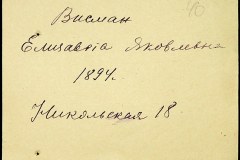 40
Висман
Елизавета Яковлевна
1894.
Никольская 18